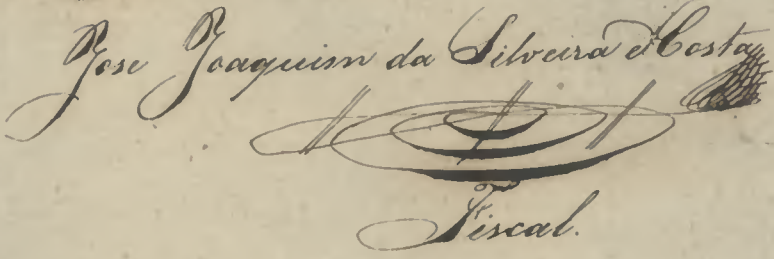 Jose Joaquim da Silveira e Costa
Fiscal.